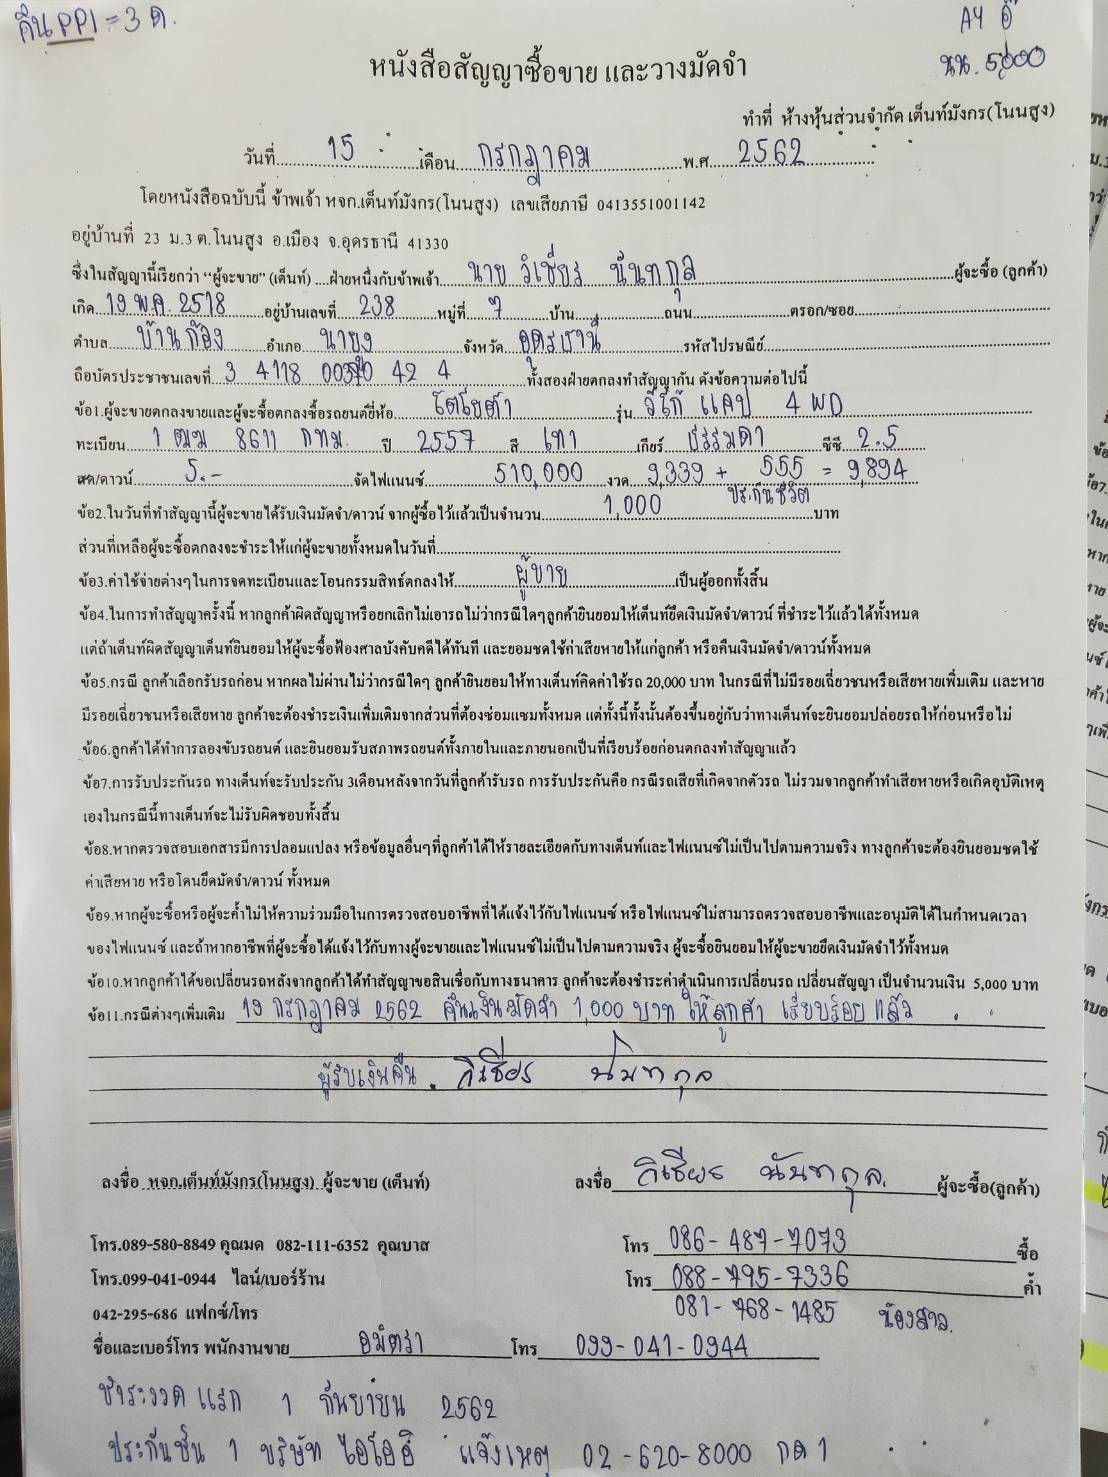 คืน PPI = 3 ด.
A4 อี๊
นน. 5,000
หนังสือสัญญาซื้อขาย และวางมัดจำ
ทำที่ ห้างหุ้นส่วนจำกัด เต็นท์มังกร(โนนสูง)
วันที่ 15 เดือน กรกฎาคม พ.ศ 2562
โดยหนังสือฉบับนี้ ข้าพเจ้า หจก.เต็นท์มังกร(โนนสูง) เลขเสียภาษี 0413551001142
อยู่บ้านที่ 23 ม.3 ต.โนนสูง อ.เมือง จ.อุดรธานี 41330
ซึ่งในสัญญานี้เรียกว่า “ผู้จะขาย” (เต็นท์) ....ฝ่ายหนึ่งกับข้าพเจ้า นาย วิเชียร นันทกุล ผู้จะซื้อ (ลูกค้า)
เกิด 19 พ.ค. 2518 อยู่บ้านเลขที่ 238 หมู่ที่ 7 บ้าน ถนน ตรอก/ซอย
ตำบล บ้านก้อง อำเภอ นายูง จังหวัด อุดรธานี รหัสไปรษณีย์
ถือบัตรประชาชนเลขที่ 3 4118 00370 42 4 ทั้งสองฝ่ายตกลงทำสัญญากัน ดังข้อความต่อไปนี้
ข้อ1.ผู้จะขายตกลงขายและผู้จะซื้อตกลงซื้อรถยนต์ยี่ห้อ โตโยต้า รุ่น วีโก้ แคป 4 WD
ทะเบียน 1 ฒฆ 8611 กทม. ปี 2557 สี เทา เกียร์ ธรรมดา ซีซี 2.5
สด/ดาวน์ 5.- จัดไฟแนนซ์ 510,000 งวด 9,339 + 555 = 9,894
ประกันชีวิต
ข้อ2.ในวันที่ทำสัญญานี้ผู้จะขายได้รับเงินมัดจำ/ดาวน์ จากผู้ซื้อไว้แล้วเป็นจำนวน 1,000 บาท
ส่วนที่เหลือผู้จะซื้อตกลงจะชำระให้แก่ผู้จะขายทั้งหมดในวันที่
ข้อ3.ค่าใช้จ่ายต่างๆในการจดทะเบียนและโอนกรรมสิทธ์ตกลงให้ ผู้ขาย เป็นผู้ออกทั้งสิ้น
ข้อ4.ในการทำสัญญาครั้งนี้ หากลูกค้าผิดสัญญาหรือยกเลิกไม่เอารถไม่ว่ากรณีใดๆลูกค้ายินยอมให้เต็นท์ยึดเงินมัดจำ/ดาวน์ ที่ชำระไว้แล้วได้ทั้งหมด
แต่ถ้าเต็นท์ผิดสัญญาเต็นท์ยินยอมให้ผู้จะซื้อฟ้องศาลบังคับคดีได้ทันที และยอมชดใช้ค่าเสียหายให้แก่ลูกค้า หรือคืนเงินมัดจำ/ดาวน์ทั้งหมด
ข้อ5.กรณี ลูกค้าเลือกรับรถก่อน หากผลไม่ผ่านไม่ว่ากรณีใดๆ ลูกค้ายินยอมให้ทางเต็นท์คิดค่าใช้รถ 20,000 บาท ในกรณีที่ไม่มีรอยเฉี่ยวชนหรือเสียหายเพิ่มเติม และหาย
มีรอยเฉี่ยวชนหรือเสียหาย ลูกค้าจะต้องชำระเงินเพิ่มเติมจากส่วนที่ต้องซ่อมแซมทั้งหมด แต่ทั้งนี้ทั้งนั้นต้องขึ้นอยู่กับว่าทางเต็นท์จะยินยอมปล่อยรถให้ก่อนหรือไม่
ข้อ6.ลูกค้าได้ทำการลองขับรถยนต์ และยินยอมรับสภาพรถยนต์ทั้งภายในและภายนอกเป็นที่เรียบร้อยก่อนตกลงทำสัญญาแล้ว
ข้อ7.การรับประกันรถ ทางเต็นท์จะรับประกัน 3เดือนหลังจากวันที่ลูกค้ารับรถ การรับประกันคือ กรณีรถเสียที่เกิดจากตัวรถ ไม่รวมจากลูกค้าทำเสียหายหรือเกิดอุบัติเหตุ
เองในกรณีนี้ทางเต็นท์จะไม่รับผิดชอบทั้งสิ้น
ข้อ8.หากตรวจสอบเอกสารมีการปลอมแปลง หรือข้อมูลอื่นๆที่ลูกค้าได้ให้รายละเอียดกับทางเต็นท์และไฟแนนซ์ไม่เป็นไปตามความจริง ทางลูกค้าจะต้องยินยอมชดใช้
ค่าเสียหาย หรือโดนยึดมัดจำ/ดาวน์ ทั้งหมด
ข้อ9.หากผู้จะซื้อหรือผู้จะค้ำไม่ให้ความร่วมมือในการตรวจสอบอาชีพที่ได้แจ้งไว้กับไฟแนนซ์ หรือไฟแนนซ์ไม่สามารถตรวจสอบอาชีพและอนุมัติได้ในกำหนดเวลา
ของไฟแนนซ์ และถ้าหากอาชีพที่ผู้จะซื้อได้แจ้งไว้กับทางผู้จะขายและไฟแนนซ์ไม่เป็นไปตามความจริง ผู้จะซื้อยินยอมให้ผู้จะขายยึดเงินมัดจำไว้ทั้งหมด
ข้อ10.หากลูกค้าได้ขอเปลี่ยนรถหลังจากลูกค้าได้ทำสัญญาขอสินเชื่อกับทางธนาคาร ลูกค้าจะต้องชำระค่าดำเนินการเปลี่ยนรถ เปลี่ยนสัญญา เป็นจำนวนเงิน 5,000 บาท
ข้อ11.กรณีต่างๆเพิ่มเติม 19 กรกฎาคม 2562 คืนเงินมัดจำ 1,000 บาท ให้ลูกค้า เรียบร้อย แล้ว
ผู้รับเงินคืน. วิเชียร นันทกุล
ลงชื่อ หจก.เต็นท์มังกร(โนนสูง) ผู้จะขาย (เต็นท์) ลงชื่อ วิเชียร นันทกุล. ผู้จะซื้อ(ลูกค้า)
โทร.089-580-8849 คุณมด 082-111-6352 คุณบาส โทร 086-487-7073 ซื้อ
โทร.099-041-0944 ไลน์/เบอร์ร้าน โทร 088-795-7336 ค้ำ
042-295-686 แฟกซ์/โทร 081-768-1485 น้องสาว.
ชื่อและเบอร์โทร พนักงานขาย อมิตรา โทร 099-041-0944
ชำระงวด แรก 1 กันยายน 2562
ประกันชั้น 1 บริษัท ไอโออิ แจ้งเหตุ 02-620-8000 กด 1